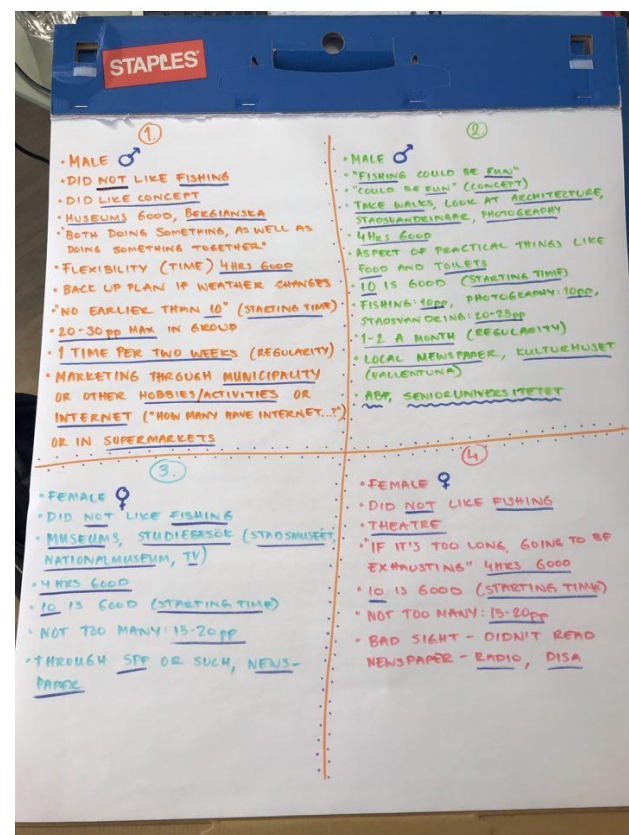 STAPLES
1
• MALE ♂
• DID NOT LIKE FISHING
• DID LIKE CONCEPT
• MUSEUMS GOOD, BERGIANSKA
• "BOTH DOING SOMETHING, AS WELL AS
DOING SOMETHING TOGETHER"
• FLEXIBILITY (TIME) 4HRS GOOD
• BACK UP PLAN IF WEATHER CHANGES
• "NO EARLIER THAN 10" (STARTING TIME)
• 20-30pp MAX IN GROUP
• 1 TIME PER TWO WEEKS (REGULARITY)
• MARKETING THROUGH MUNICIPALITY
OR OTHER HOBBIES/ACTIVITIES OR
INTERNET ("HOW MANY HAVE INTERNET...?")
OR IN SUPERMARKETS
2.
• MALE ♂
• "FISHING COULD BE FUN"
• "COULD BE FUN" (CONCEPT)
• TAKE WALKS, LOOK AT ARCHITECTURE,
STADSVANDRINGAR, PHOTOGRAPHY
• 4HRS GOOD
• ASPECT OF PRACTICAL THINGS LIKE
FOOD AND TOILETS
• 10 IS GOOD (STARTING TIME)
• FISHING: 10pp, PHOTOGRAPHY: 10pp,
STADSVANDRING: 20-25pp
• 1-2 A MONTH (REGULARITY)
• LOCAL NEWSPAPER, KULTURHUSET
(VALLENTUNA)
• ABF, SENIORUNIVERSITETET
3.
• FEMALE ♀
• DID NOT LIKE FISHING
• MUSEUMS, STUDIEBESÖK (STADSMUSÉET,
NATIONALMUSEUM, TV)
• 4 HRS GOOD
• 10 IS GOOD (STARTING TIME)
• NOT TOO MANY: 15-20pp
• THROUGH SPF OR SUCH, NEWS-
PAPER
4.
• FEMALE ♀
• DID NOT LIKE FISHING
• THEATRE
• "IF IT'S TOO LONG, GOING TO BE
EXHAUSTING" 4HRS GOOD
• 10 IS GOOD (STARTING TIME)
• NOT TOO MANY: 15-20pp
• BAD SIGHT - DIDN'T READ
NEWSPAPER - RADIO, DISA